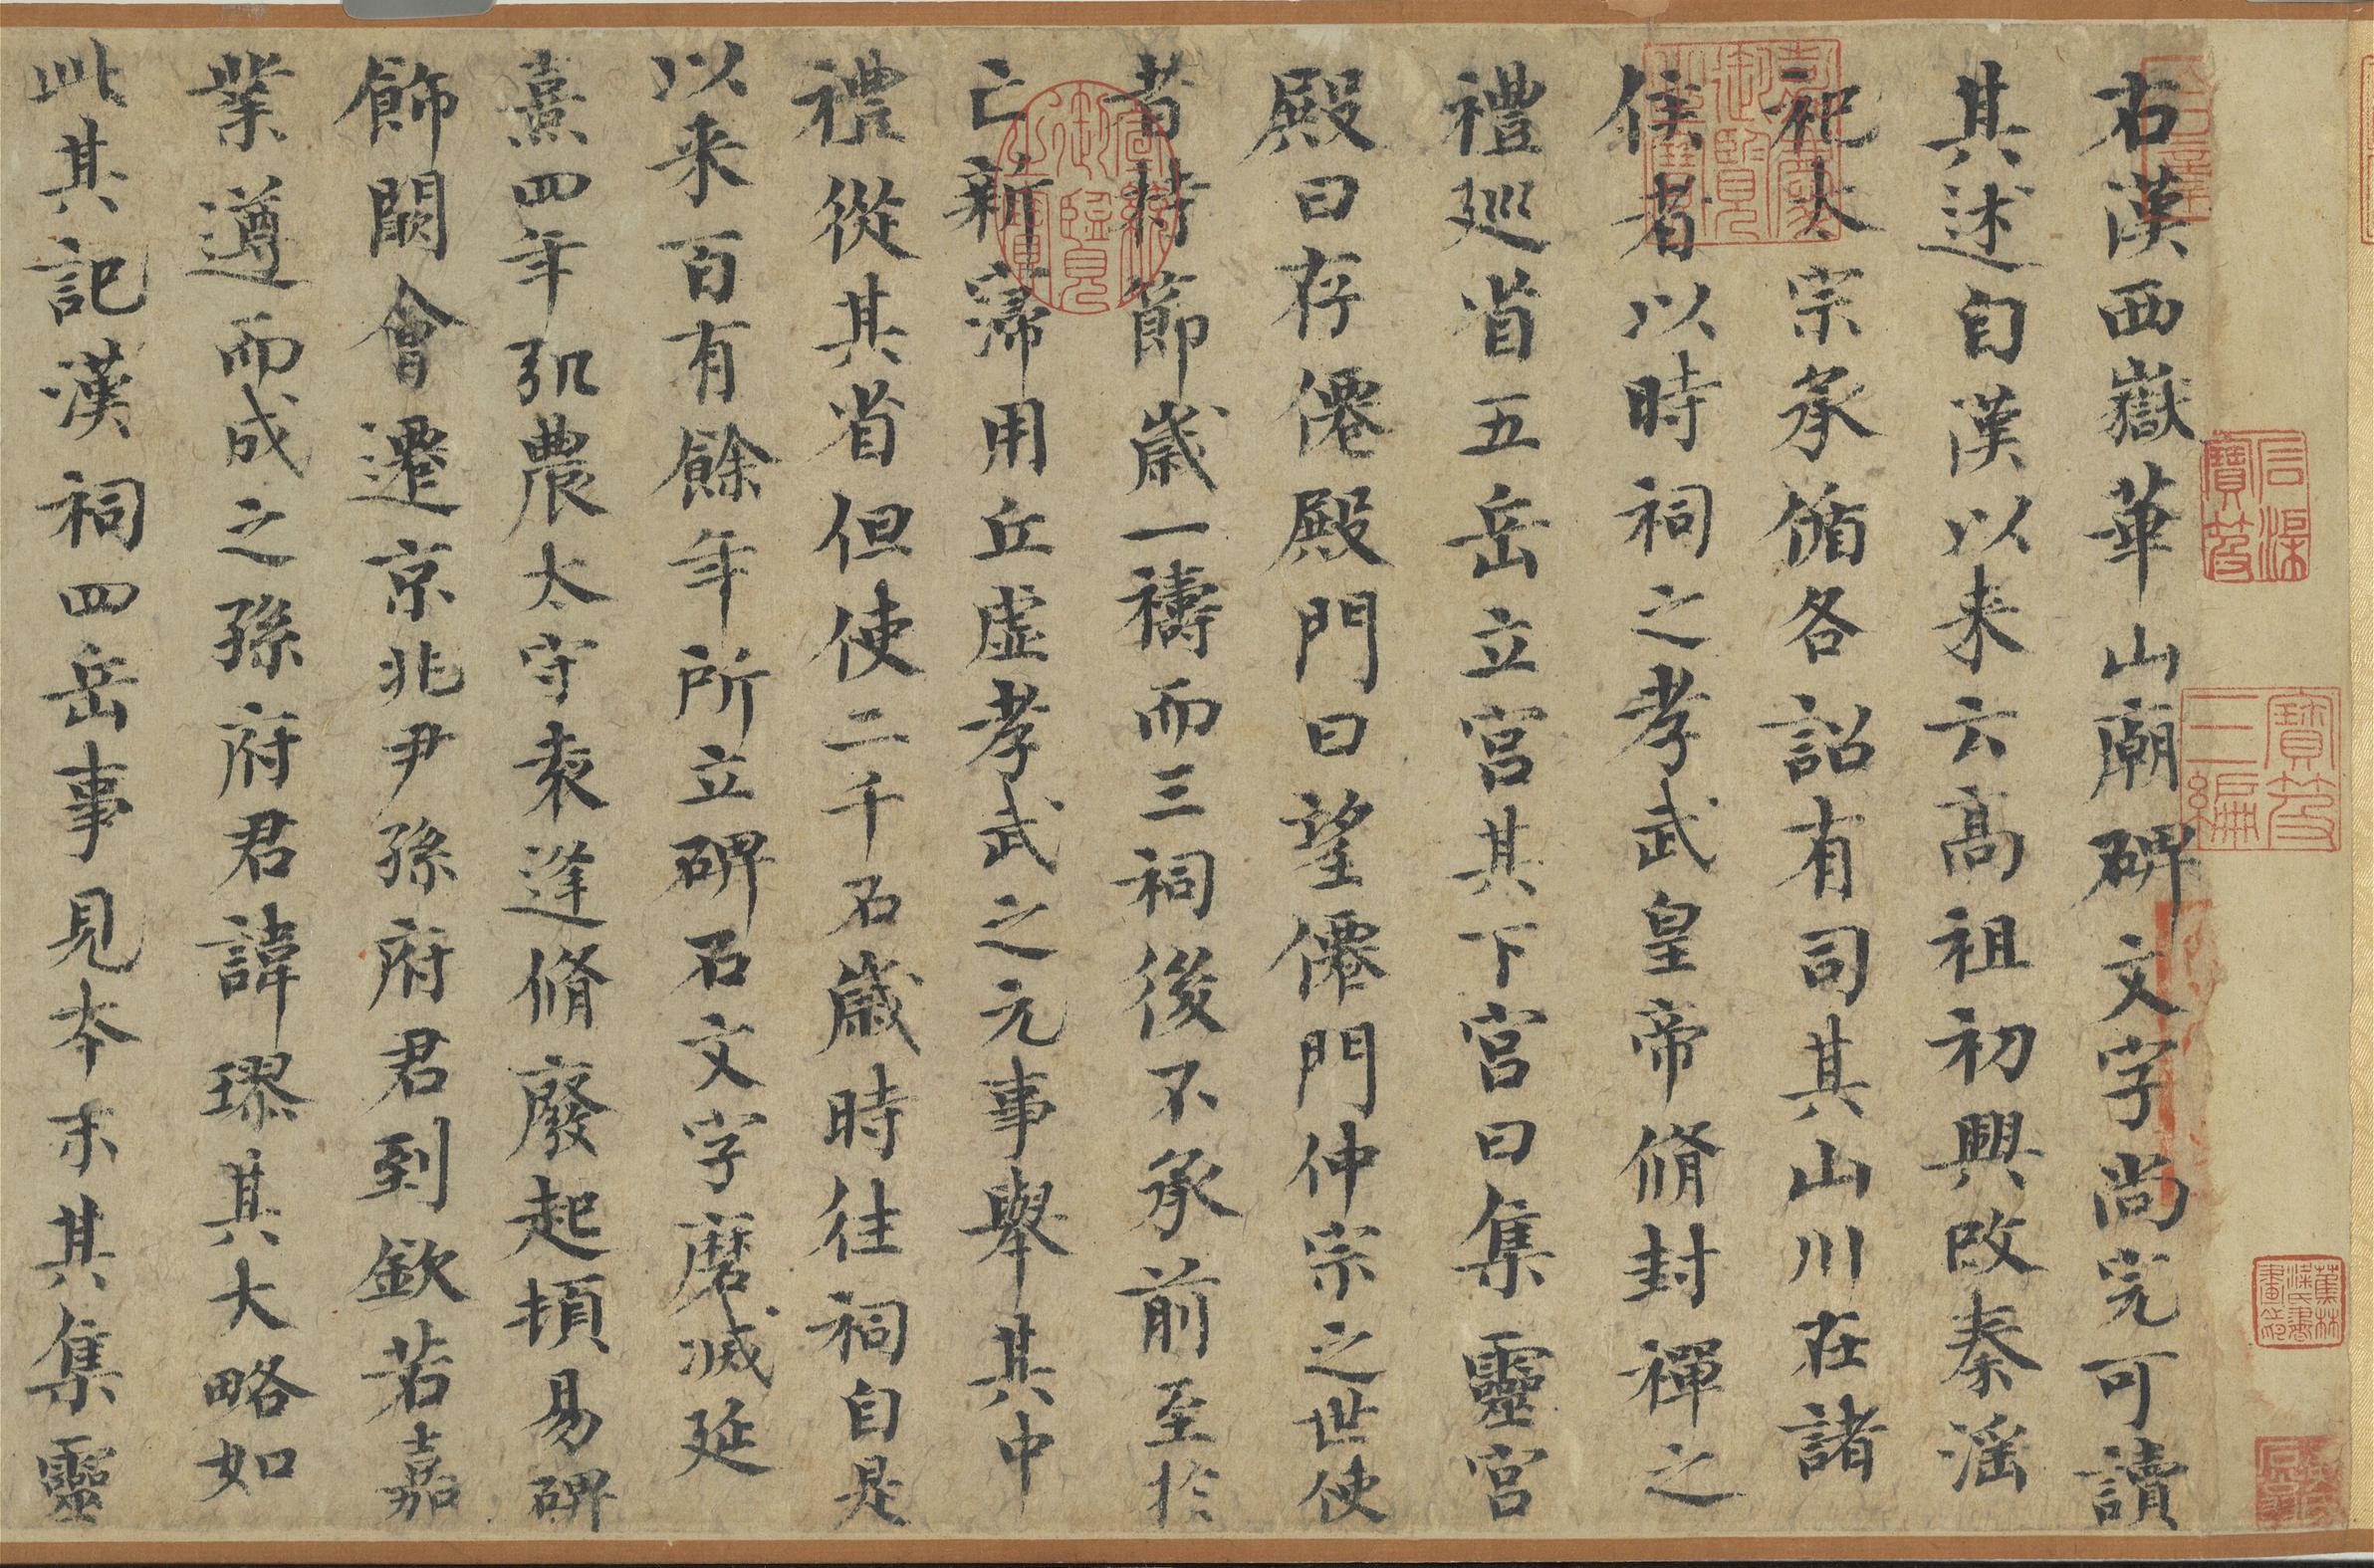 右漢西嶽華山廟碑文字尚完可讀
其述自漢以来云高祖初興改秦滛
祀太宗承循各詔有司其山川在諸
侯者以時祠之孝武皇帝脩封禪之
禮巡省五岳立宮其下宮曰集靈宮
殿曰存僊殿門曰望僊門仲宗之世使
者持節歳一禱而三祠後不承前至於
亡新寖用丘虚孝武之元事舉其中
禮從其省但使二千石歳時往祠自是
以来百有餘年所立碑石文字磨滅延
熹四年弘農太守袁逢脩廢起頓易碑
飾闕會遷京兆尹孫府君到欽若嘉
業遵而成之孫府君諱璆其大略如
此其記漢祠四岳事見本末其集靈
嘉慶御覽之寶
宣統御覽之寶
寶笈三編
蕉林梁氏書畫之印